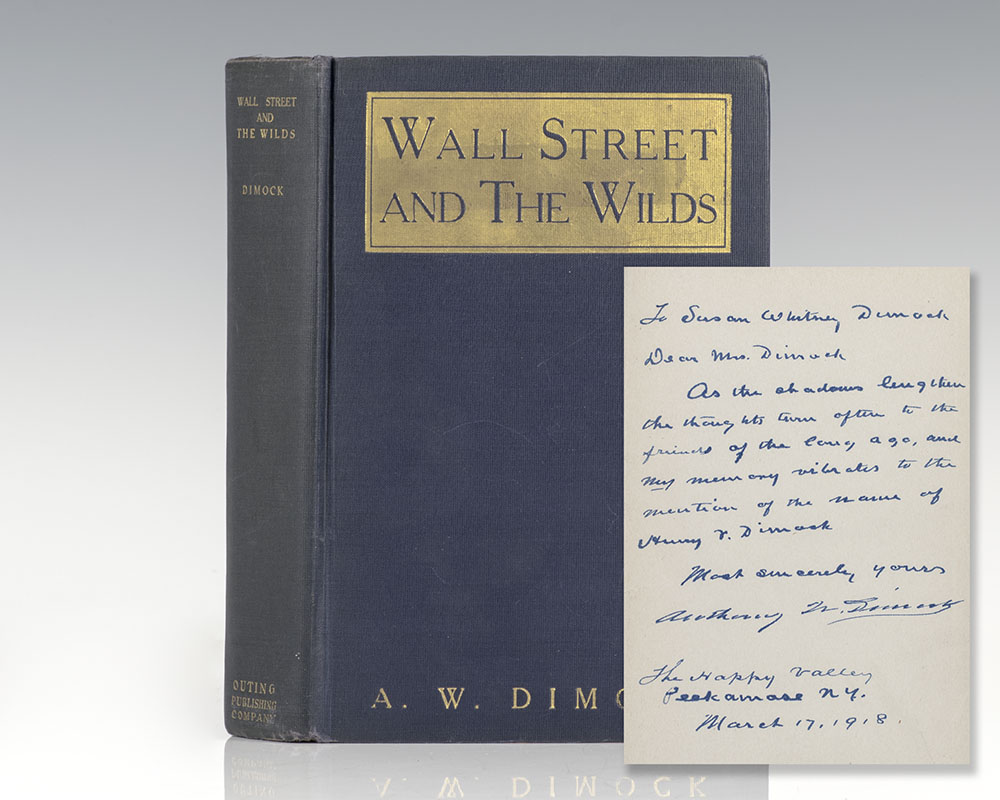 WALL STREET
AND
THE WILDS
DIMOCK
OUTING
PUBLISHING
COMPANY
WALL STREET
AND THE WILDS
A. W. DIMO
To Susan Whitney Dimock
Dear Mrs. Dimock
As the shadows lengthen
the thoughts turn often to the
friends of the long ago, and
my memory vibrates to the
mention of the name of
Henry F. Dimock
Most sincerely yours
Anthony W. Dimock
The Happy Valley
Peekamose N.Y.
March 17, 1918.